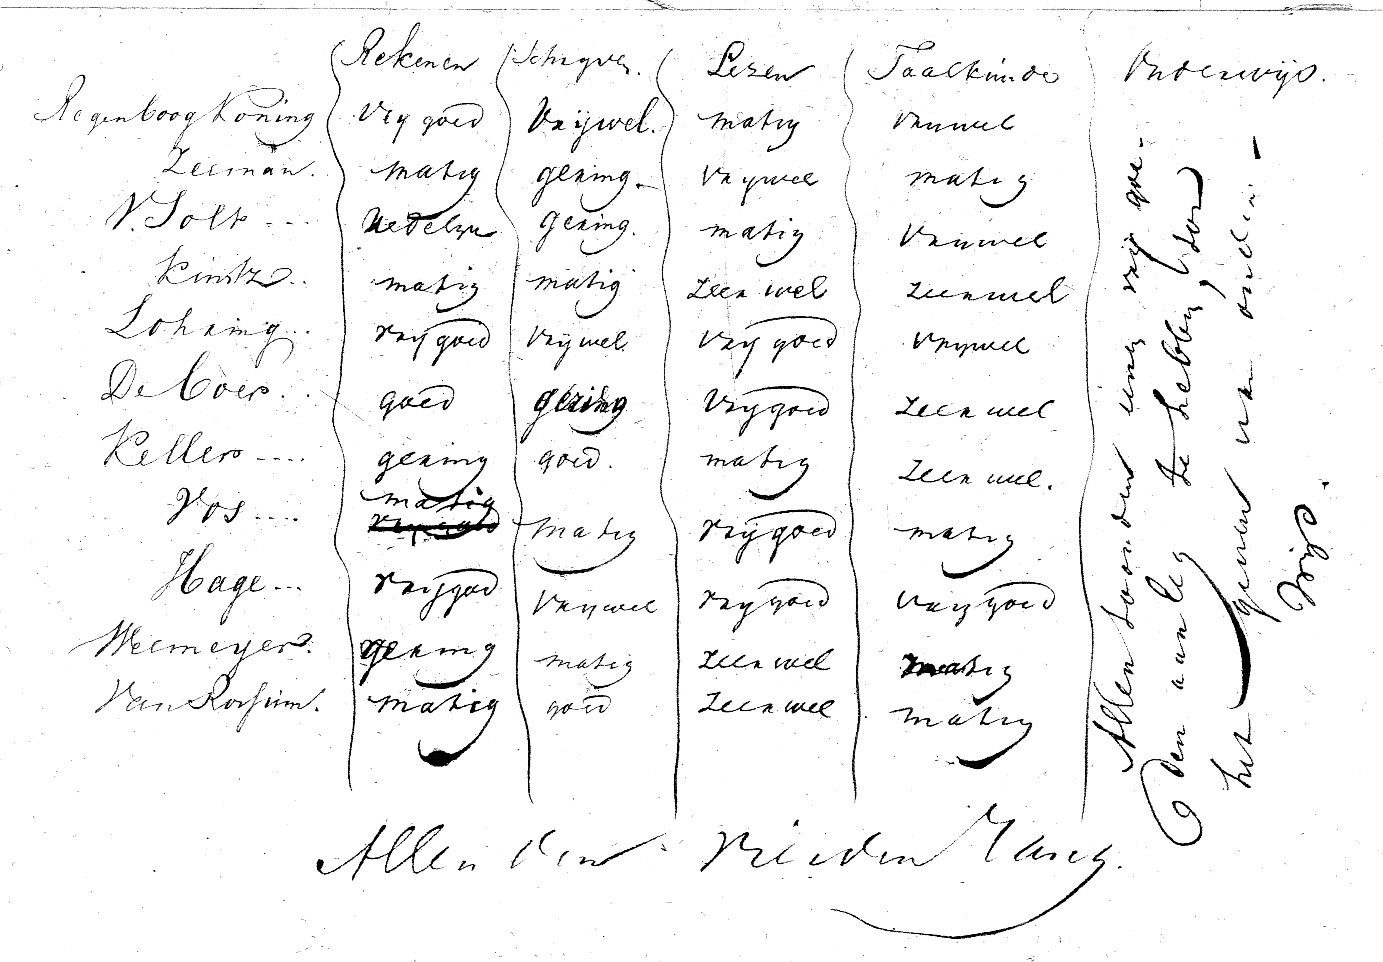 Rekenen Schryven. Lezen Taalkunde Onderwijs.
Regenboog Koning Vry goed Vrijwel. matig Vrywel
Zeeman. matig gering. Vrywel matig
V. Solt --- Redelyk gering. matig Vrywel
Kintz.. matig matig zeer wel zeer wel
Lohning... vry goed vry wel. Vry goed Vrywel
De Boer. . . goed gering Vrygoed zeer wel
Kellers ---- gering goed. matig zeer wel.
Vos ---- matig matig vrijgoed matig
Hage --- vrijgoed Vrywel vrygoed Vrygoed
Weemeyer. gering matig zeer wel matig
Van Rossum. matig goed zeer wel matig
Allen toonden eenen vrij goe-
den aanleg te hebben, voor
het geven van onder-
wijs.
Allen den vierden Rang.